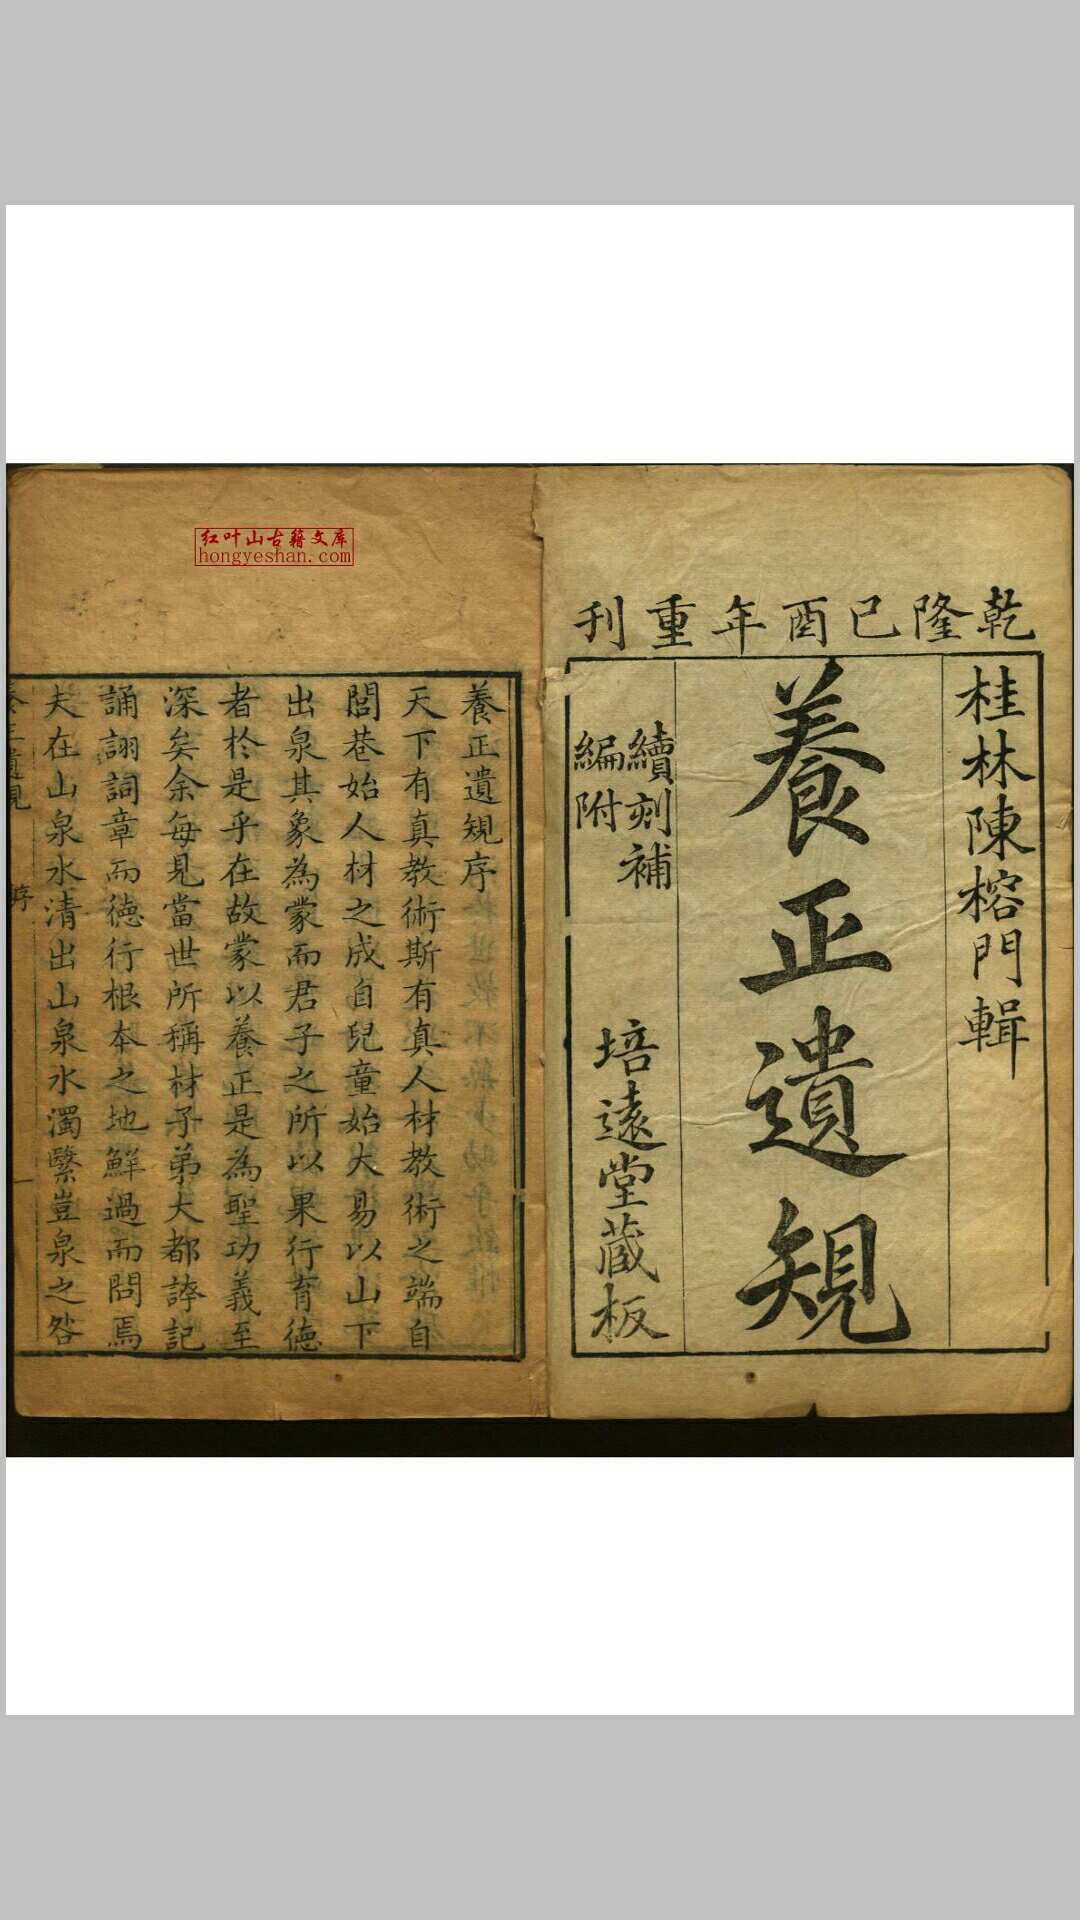 乾隆己酉年重刊
桂林陳榕門輯
養正遺規
續刻補
編附
培遠堂藏板
红叶山古籍文库
hongyeshan.com
養正遺規序
天下有真教術斯有真人材教術之端自
閭巷始人材之成自兒童始大易以山下
出泉其象為蒙而君子之所以果行育德
者於是乎在故蒙以養正是為聖功義至
深矣余每見當世所稱材子弟大都誇記
誦詡詞章而德行根本之地鮮過而問焉
夫在山泉水清出山泉水濁繄豈泉之咎
養正遺規 序 一